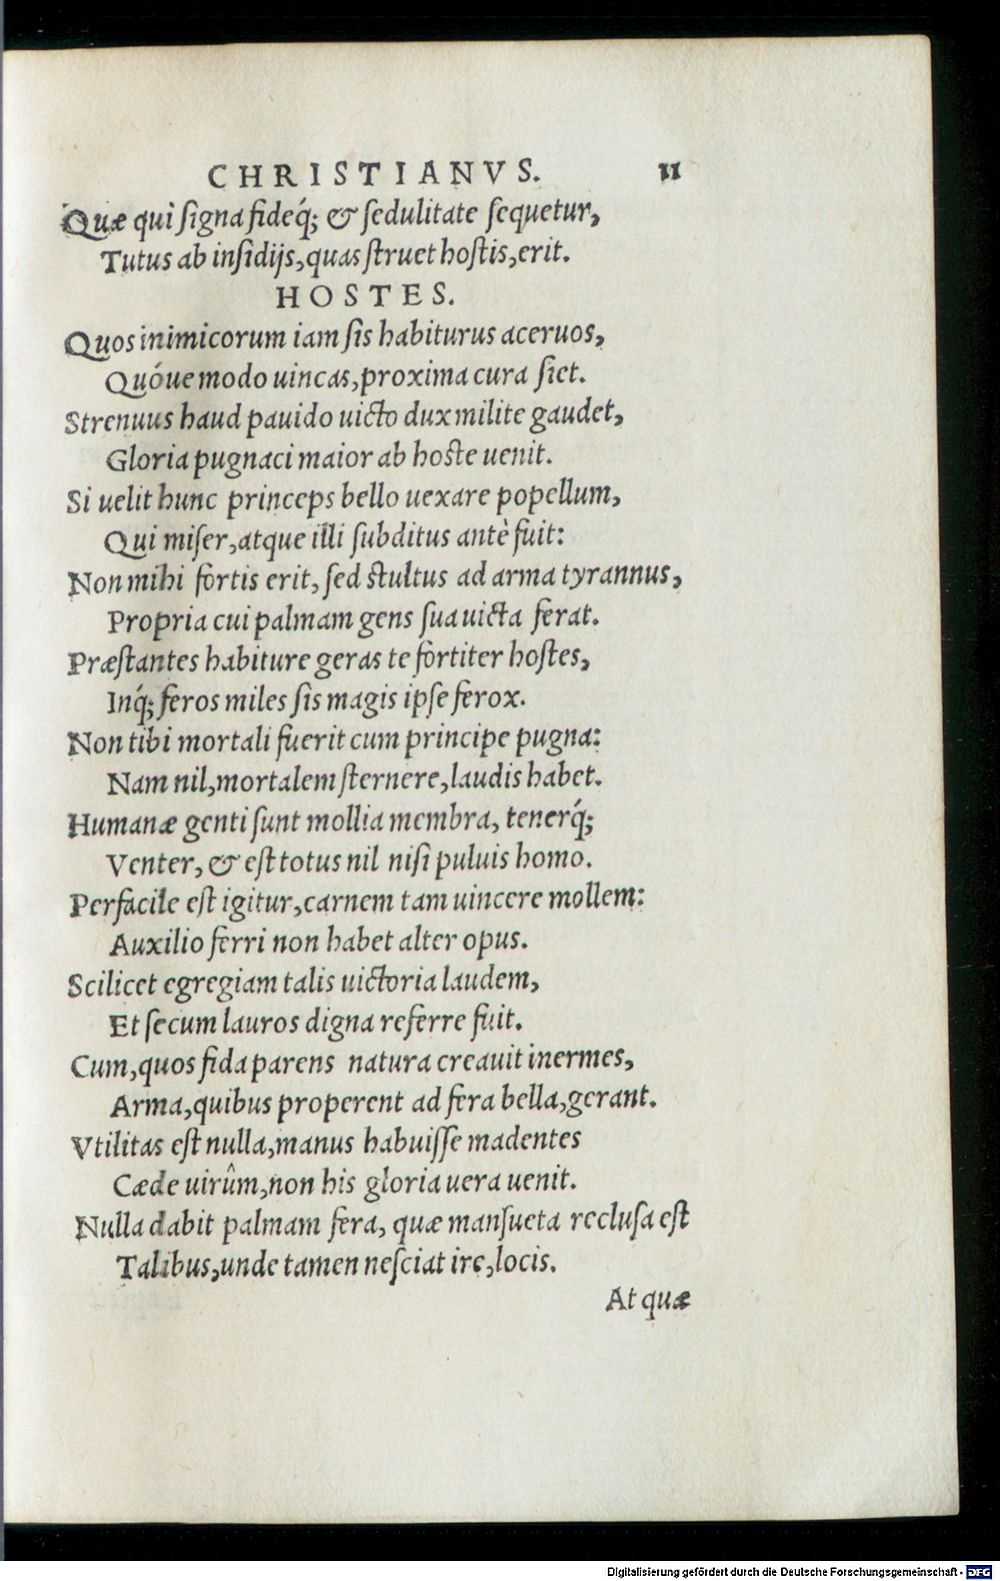 CHRISTIANVS. 11
Quæ qui signa fideq́; & sedulitate sequetur,
Tutus ab insidijs, quas struet hostis, erit.
HOSTES.
Quos inimicorum iam sis habiturus aceruos,
Quóue modo uincas, proxima cura siet.
Strenuus haud pauido uicto dux milite gaudet,
Gloria pugnaci maior ab hoste uenit.
Si uelit hunc princeps bello uexare popellum,
Qui miser, atque illi subditus antè fuit:
Non mihi fortis erit, sed stultus ad arma tyrannus,
Propria cui palmam gens sua uicta ferat.
Præstantes habiture geras te fortiter hostes,
Inq́; feros miles sis magis ipse ferox.
Non tibi mortali fuerit cum principe pugna:
Nam nil, mortalem sternere, laudis habet.
Humanæ genti sunt mollia membra, tenerq́;
Venter, & est totus nil nisi puluis homo.
Perfacile est igitur, carnem tam uincere mollem:
Auxilio ferri non habet alter opus.
Scilicet egregiam talis uictoria laudem,
Et secum lauros digna referre fuit.
Cum, quos fida parens natura creauit inermes,
Arma, quibus properent ad fera bella, gerant.
Vtilitas est nulla, manus habuisse madentes
Cæde uirûm, non his gloria uera uenit.
Nulla dabit palmam fera, quæ mansueta reclusa est
Talibus, unde tamen nesciat ire, locis.
At quæ
Digitalisierung gefördert durch die Deutsche Forschungsgemeinschaft - DFG